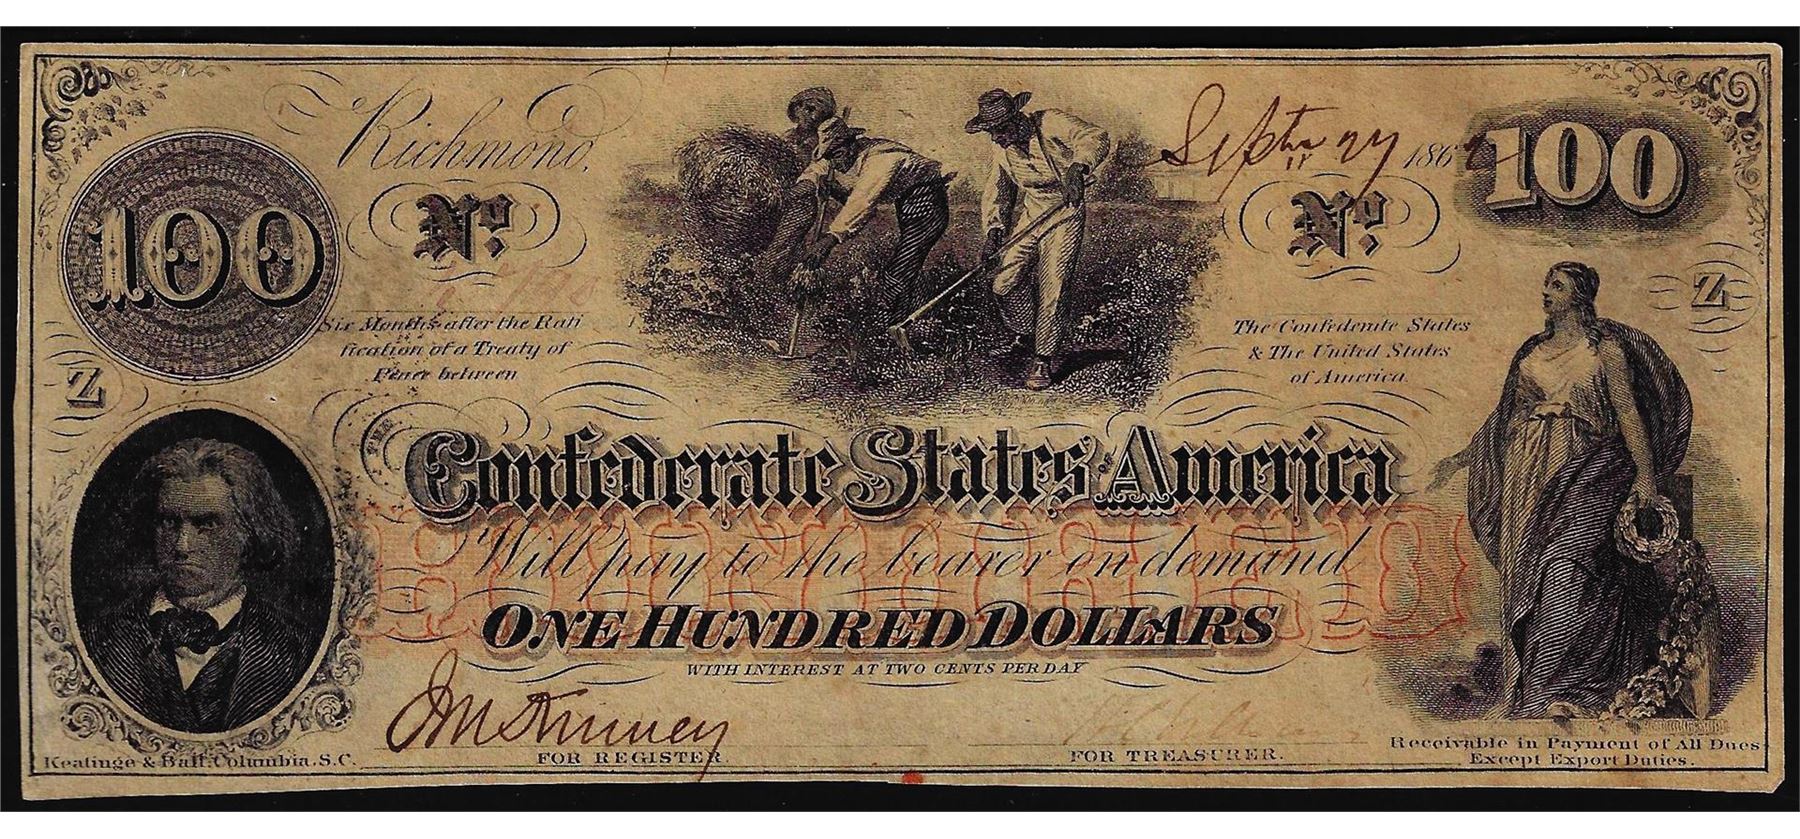 Richmond,
Septr 27 1862
100
No.
No.
100
Z
Six Months after the Rati
fication of a Treaty of
Peace between
The Confederate States
& The United States
of America.
Z
THE
Confederate States OF America
HUNDRED
Will pay to the bearer on demand
ONE HUNDRED DOLLARS
WITH INTEREST AT TWO CENTS PER DAY
Keatinge & Ball, Columbia, S.C.
FOR REGISTER.
FOR TREASURER.
Receivable in Payment of All Dues
Except Export Duties.